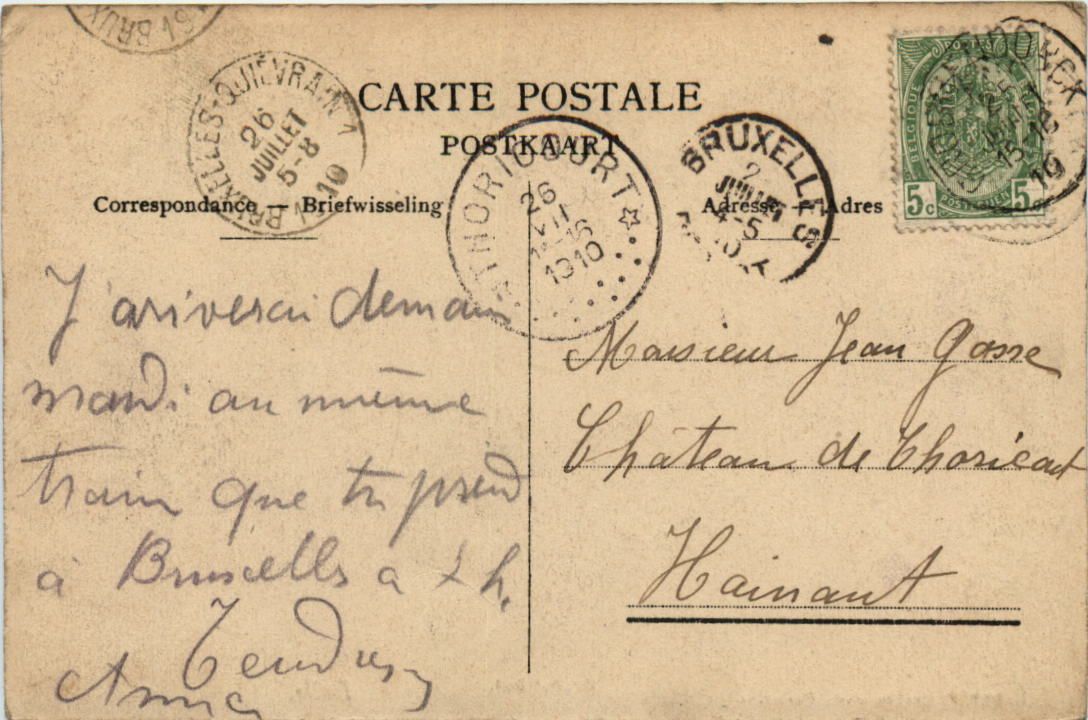 CARTE POSTALE
POSTKAART
Correspondance — Briefwisseling
Adresse — Adres
BRUX
19
BRUXELLES-QUIÉVRAIN 1
26
JUILLET
5-8
1910
THORICOURT
26
VII
16
1910
BRUXELLES
2
JUILLET
5
POSTES
BELGIQUE
BELGIE
POSTERIJEN
5c 5c
15
19
J'ariverai demain
mardi au même
train que tu prend
à Bruxelles a 2 h.
Anna
Monsieur Jean Gosse
Château de Thoricourt
Hainaut